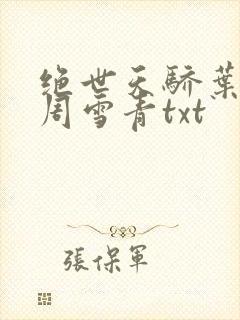 绝世天骄葉
周雪青txt
張保軍